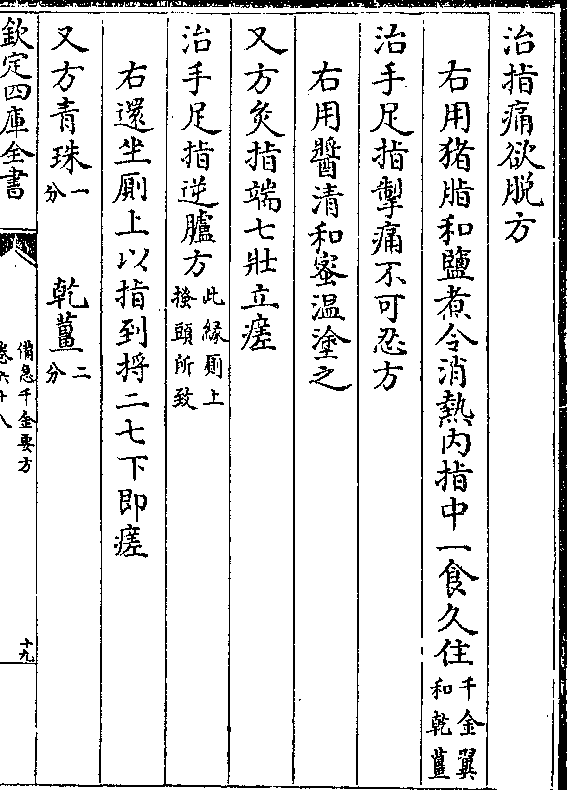 治指痛欲脱方
右用猪脂和鹽煮令消熱内指中一食久住千金翼和乾薑
治手足指掣痛不可忍方
右用醬清和蜜温塗之
又方灸指端七壯立瘥
治手足指逆臚方此緣厠上搔頭所致
右還坐厠上以指到捋二七下即瘥
又方青珠一分 乾薑二分
欽定四庫全書
備急千金要方
卷六十八
十九